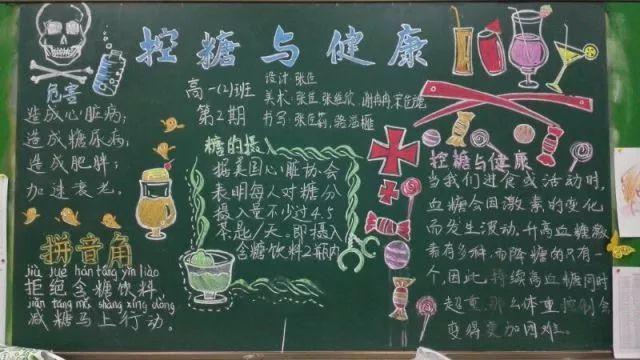 控糖与健康
高一(2)班
第2期
设计 张臣
美术:张臣 张维欣 谢冉冉 宋臣
书写:张臣 骆滢
危害
造成心脏病;
造成糖尿病;
造成肥胖;
加速衰老。
拼音角
jù jué hán táng yǐn liào
拒绝含糖饮料
jiǎn táng mǎ shàng xíng dòng
减糖马上行动。
糖的摄入
据美国心脏协会
表明每人对糖分
摄入量不少过4.5
茶匙/天。即摄入
含糖饮料2瓶内
控糖与健康
当我们进食或活动时,
血糖会因激素的变化
而发生波动,升高血糖激
素有多种,而降糖的只有
一个,因此,持续高血糖同时
超重,那么体重控制会
变得更加困难。